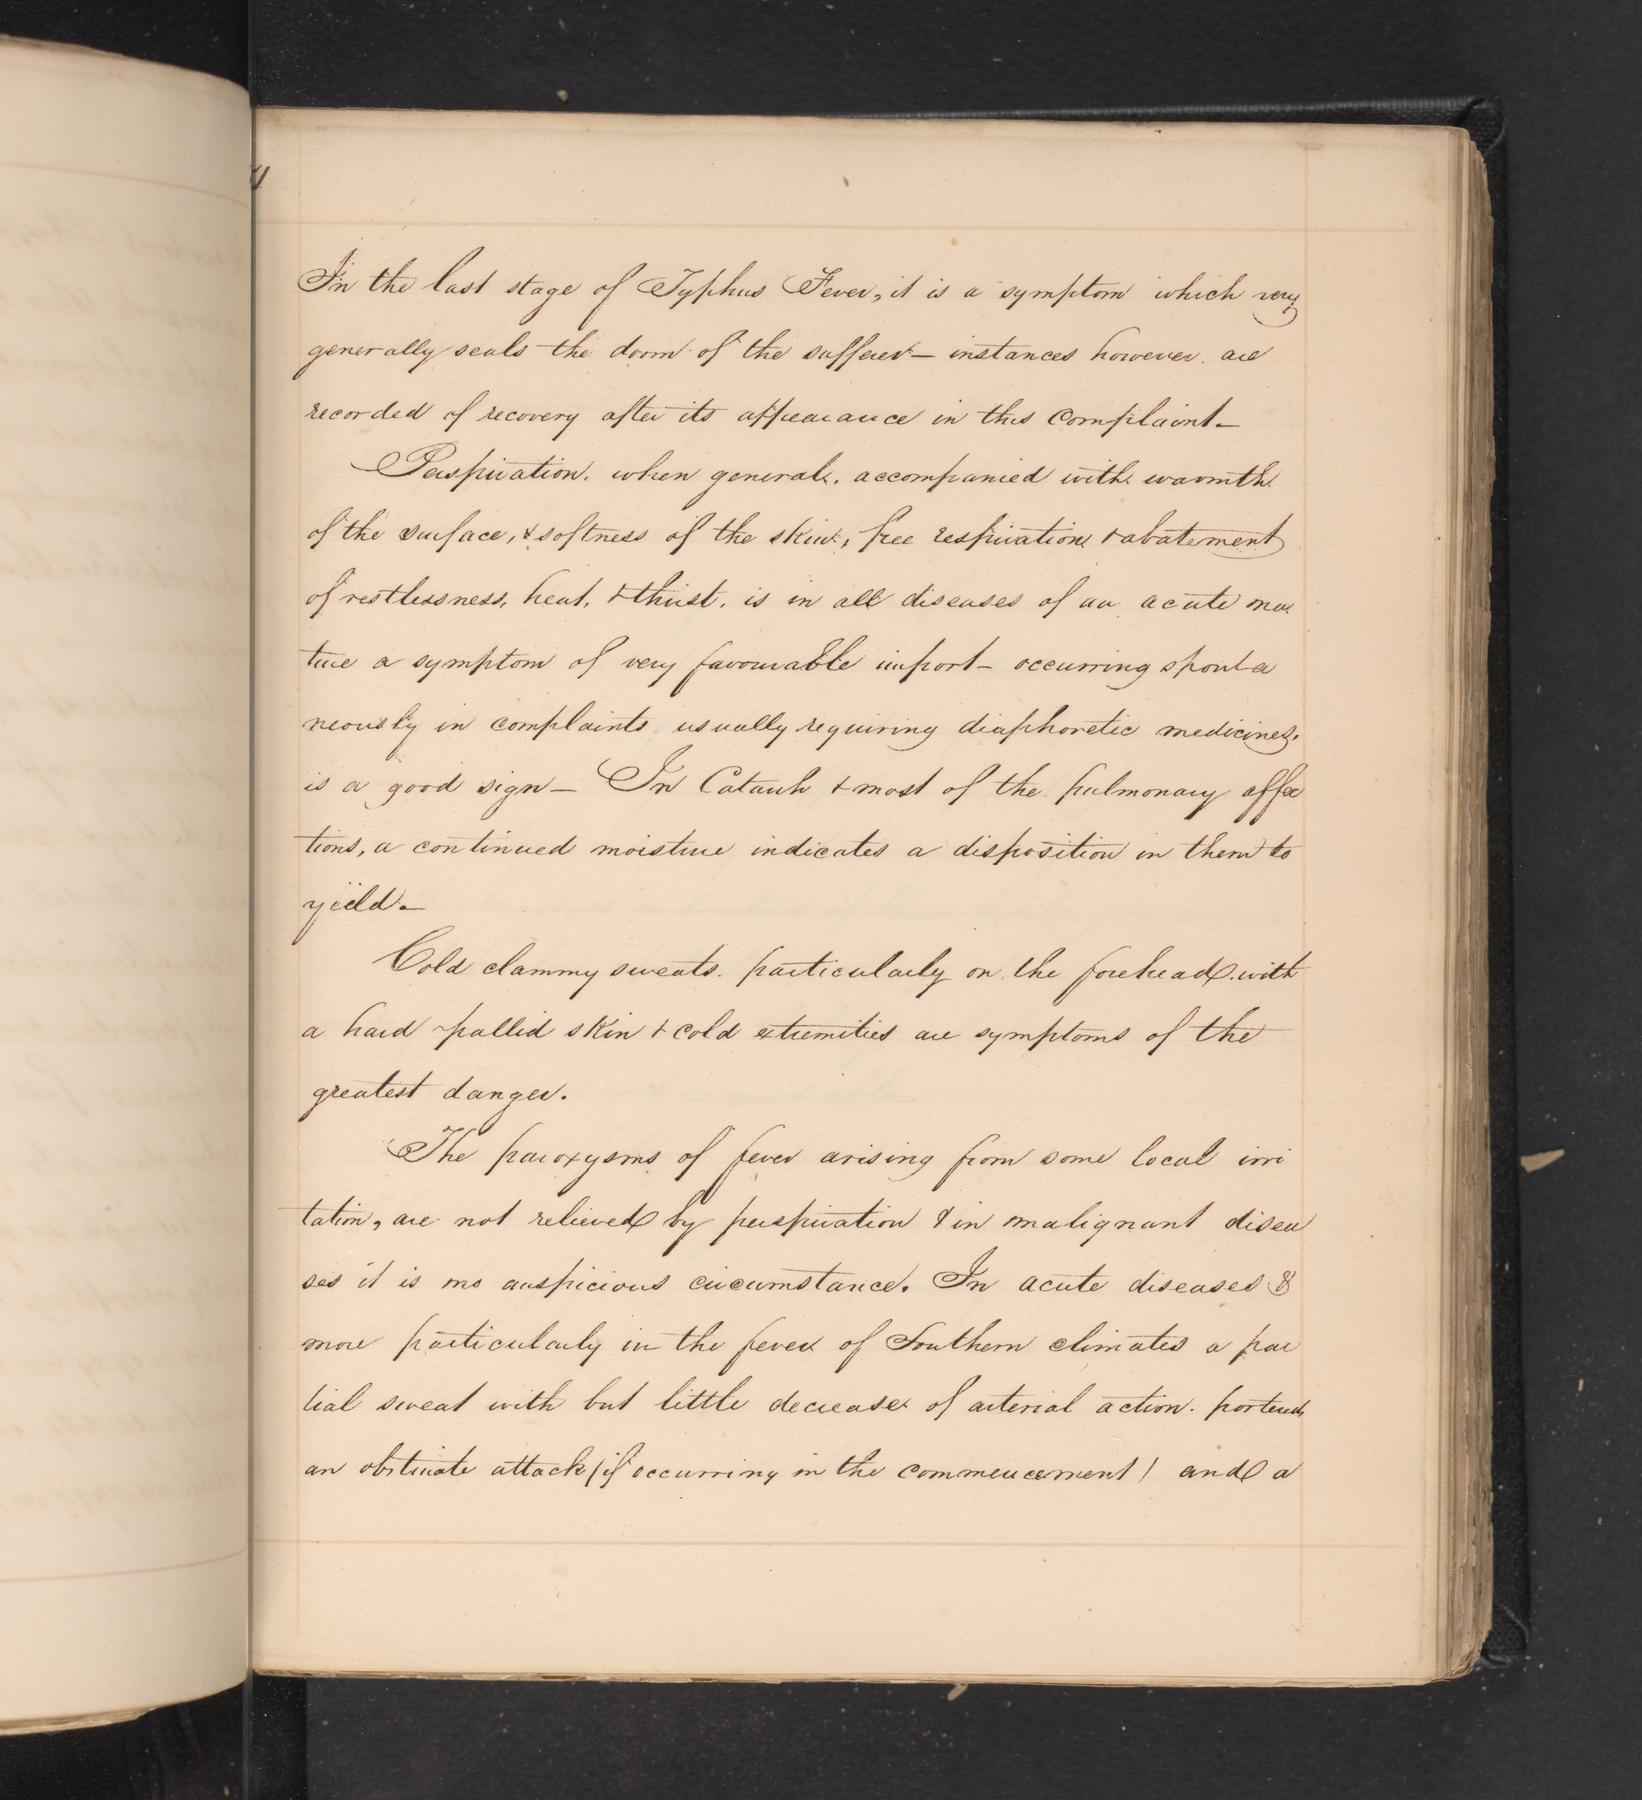 In the last stage of Typhus Fever, it is a symptom which very
generally seals the doom of the sufferer — instances however are
recorded of recovery after its appearance in this Complaint —
Perspiration, when general, accompanied with warmth
of the surface, & softness of the skin, free respiration & abatement
of restlessness, heat, & thirst, is in all diseases of an acute na
ture a symptom of very favourable import — occurring sponta
neously in complaints usually requiring diaphoretic medicines,
is a good sign — In Catarrh & most of the pulmonary affec
tions, a continued moisture indicates a disposition in them to
yield —
Cold clammy sweats, particularly on the forehead, with
a hard pallid skin & cold extremities are symptoms of the
greatest danger.
The paroxysms of fever arising from some local irri
tation, are not relieved by perspiration & in malignant disea
ses it is no auspicious circumstance. In acute diseases &
more particularly in the fever of Southern climates a par
tial sweat with but little decrease of arterial action, portends
an obstinate attack (if occurring in the commencement) and a